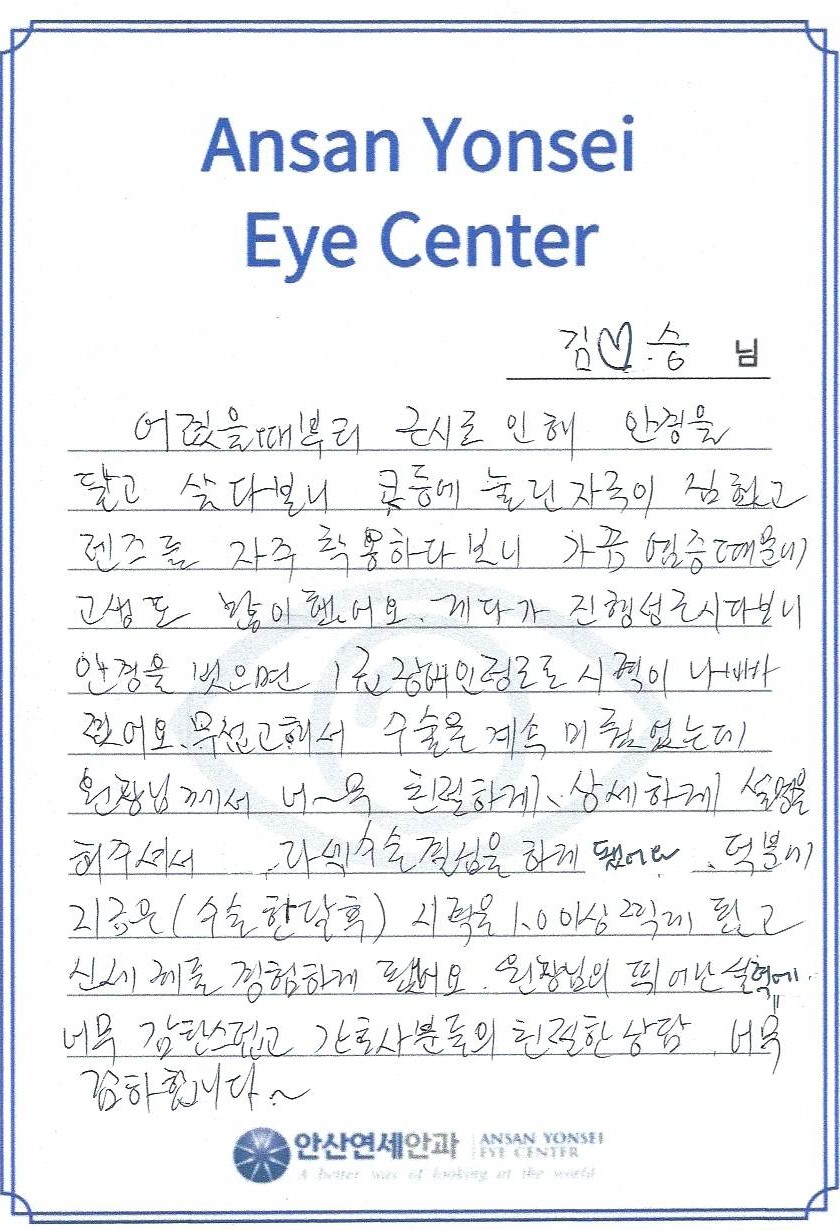 Ansan Yonsei
Eye Center
김♡승 님
어렸을때부터 근시로 인해 안경을
달고 살다보니 콧등에 눌린자국이 심했고
렌즈를 자주 착용하다보니 가끔 염증때문에
고생도 많이했어요. 게다가 진행성근시다보니
안경을 벗으면 1급장애인정도로 시력이 나빠
졌어요. 무섭고해서 수술을 계속 미뤄왔는데
원장님께서 너~무 친절하게, 상세하게 설명을
해주셔서 라섹수술결심을 하게 됐어요. 덕분에
지금은(수술한달후) 시력을 1.0이상 갖게 됐고
신세계를 경험하게 됐어요. 원장님의 뛰어난 실력에
너무 감탄스럽고 간호사분들의 친절한상담 너무
감사합니다.~
안산연세안과 ANSAN YONSEI
EYE CENTER
A better way of looking at the world